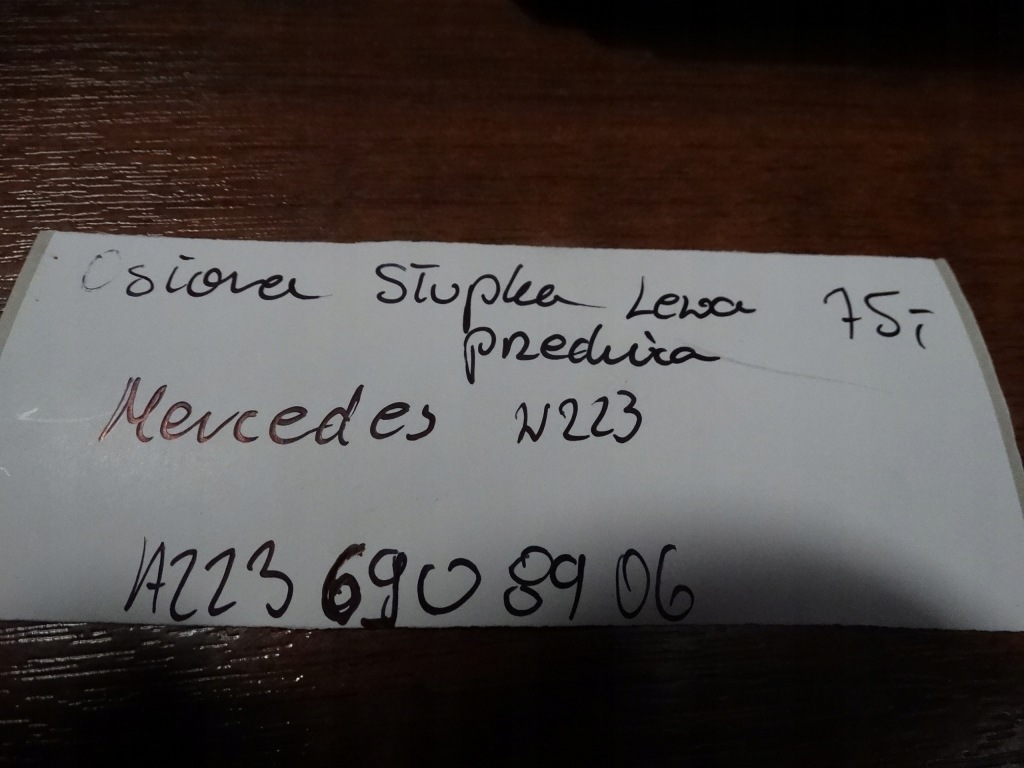 Osłona Słupka Lewa 75,-
przednia
Mercedes W223
A223 690 89 06